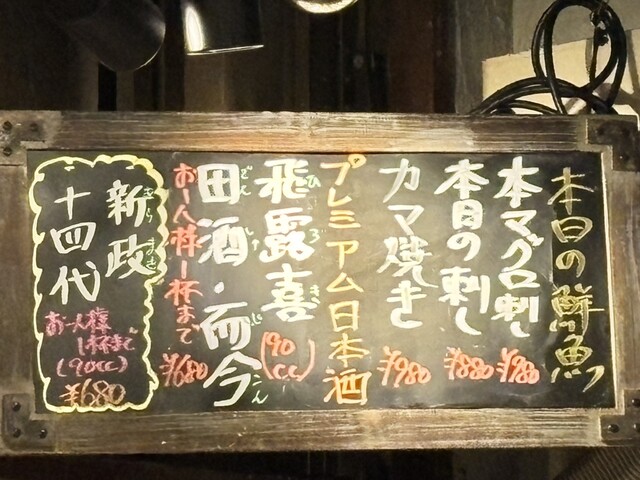 本日の鮮魚
本マグロ刺し ¥980
本日の刺し ¥880
カマ焼き ¥980
プレミアム日本酒
飛露喜 (90cc)
ひろき
田酒・而今
でんしゅ じこん
お一人様1杯まで ¥680
新政
あらまさ
十四代
お一人様
1杯まで
(90cc)
¥680